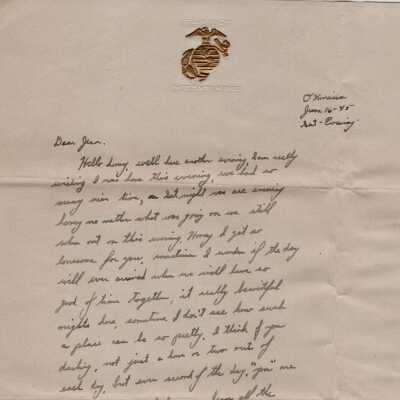 Okinawa
June 16-45
Sat - Evening
Dear Jean,
Hello honey, well here another evening, I am really
wishing I was home this evening, we had so
many nice time, on Sat night was are evening
honey no matter what was going on we still
when out on this evening. Honey I get so
lonesome for you, sometime I wonder if the day
will ever arrived when we will have so
good of time together, it really beautiful
nights here, sometime I don't see how such
a place can be so pretty. I think of you
darling, not just a hour or two out of
each day, but even second of the day, "you" are
all the